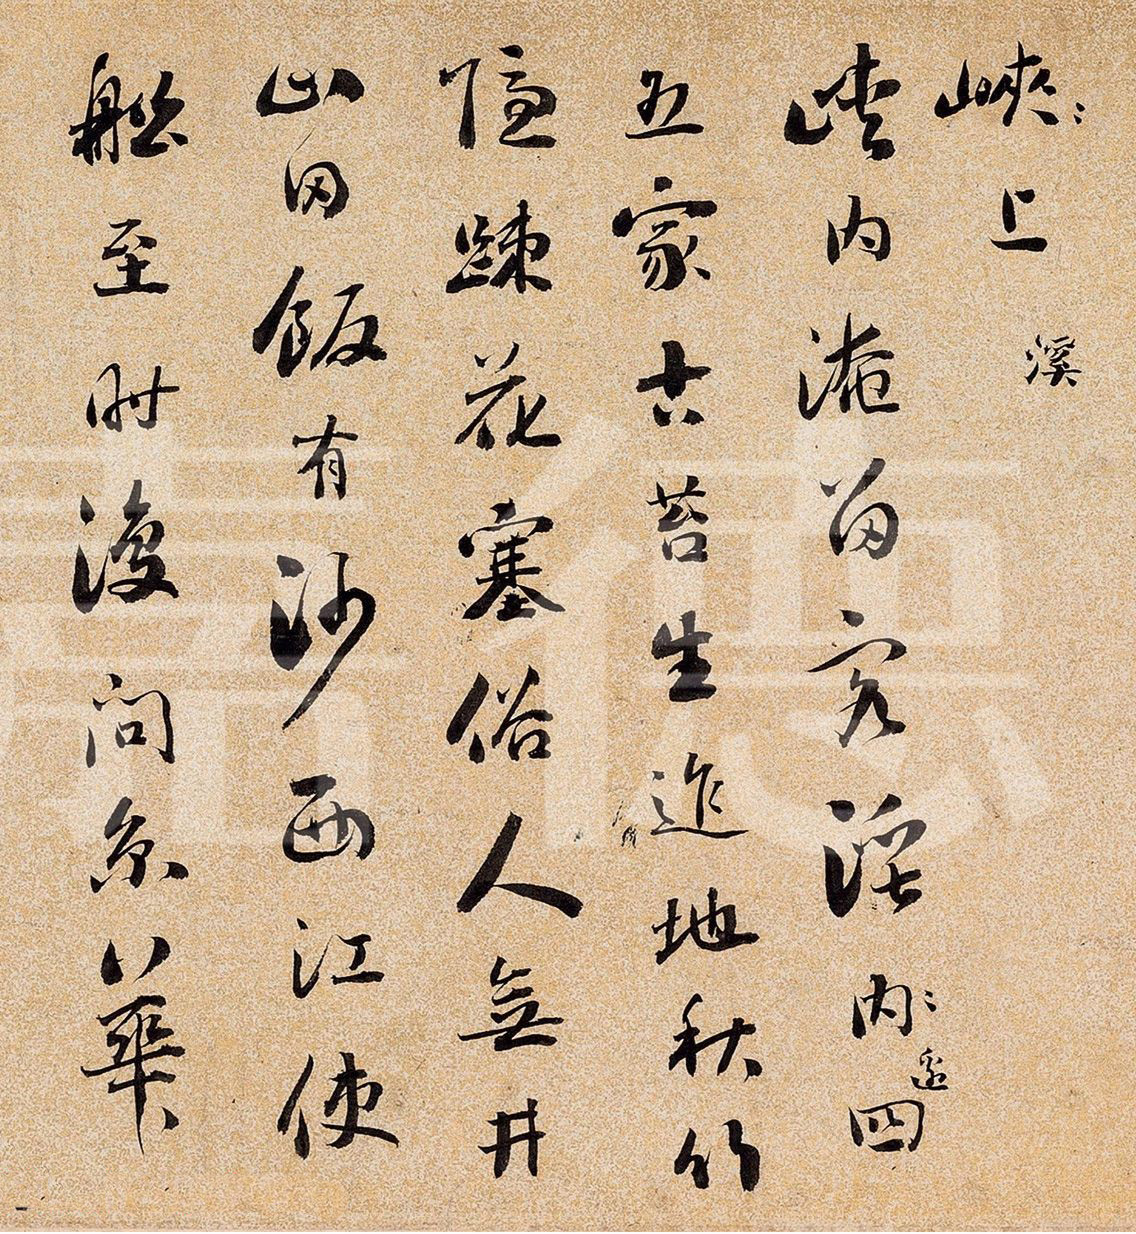 峽上溪
峽內淹留客溪內邊四
五家古苔生迮地秋竹
隱踈花塞俗人無井
山田飯有沙西江使
舩至时復問京華
嘉德